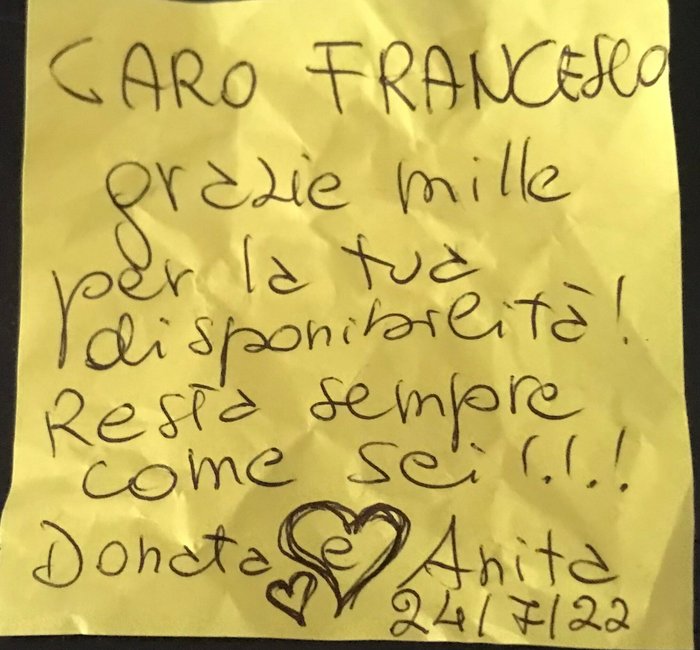 CARO FRANCESCO
grazie mille
per la tua
disponibilità!
Resta sempre
come sei !.!.!
Donata e Anita
24/7/22